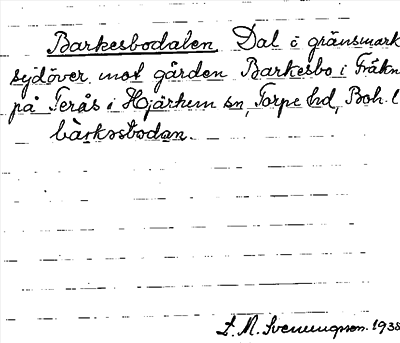 Barkesbodalen Dal i gränsmark
sydöver mot gården Barkesbo i Fräkn
på Terås i Hjärtum sn, Torpe hd, Boh. l
bàrkosbodan.
S. M. Svenungson. 1938